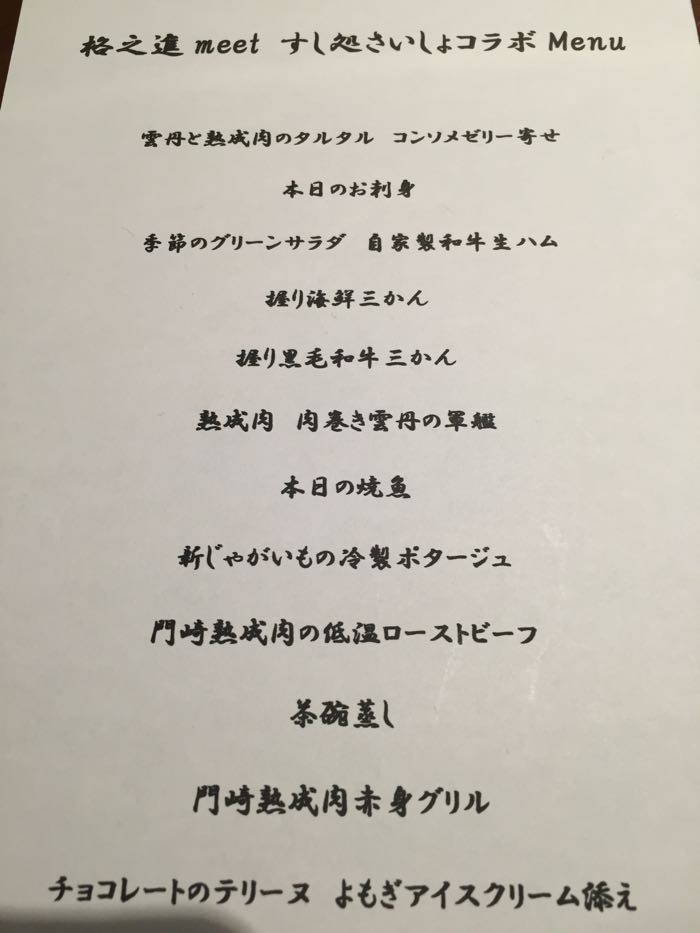 格之進 meet すし処さいしょコラボ Menu
雲丹と熟成肉のタルタル コンソメゼリー寄せ
本日のお刺身
季節のグリーンサラダ 自家製和牛生ハム
握り海鮮三かん
握り黒毛和牛三かん
熟成肉 肉巻き雲丹の軍艦
本日の焼魚
新じゃがいもの冷製ポタージュ
門崎熟成肉の低温ローストビーフ
茶碗蒸し
門崎熟成肉赤身グリル
チョコレートのテリーヌ よもぎアイスクリーム添え